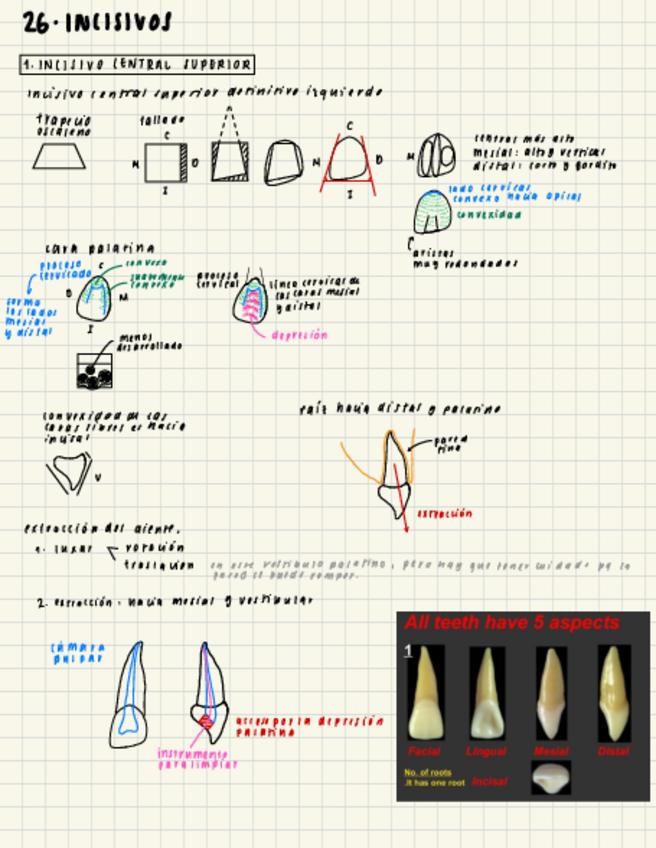 26. INCISIVOS
1. INCISIVO CENTRAL SUPERIOR
Incisivo central superior definitivo izquierdo
trapecio
escaleno
tallado
C
M
D
I
C
M
D
I
M
central más alto
mesial: alto y vertical
distal: corto y gordito
lado cervical
convexo hacia apical
convexidad
aristas
muy redondeadas
cara palatina
proceso
cervical
C
convexo
convexo
D
M
I
forma
los lados
mesial
y distal
proceso
cervical
línea cervical de
las caras mesial
y distal
depresión
menos
desarrollado
convexidad de las
caras libres es hacia
incisal
V
raíz hacia distal y palatino
pared
fina
extracción
extracción del diente.
1. luxar
rotación
traslación
en este vestíbulo palatino, pero hay que tener cuidado pq la
pared se puede romper.
2. extracción: hacia mesial y vestibular
cámara
pulpar
acceso por la depresión
palatina
instrumento
para limpiar
All teeth have 5 aspects
1
Facial
Lingual
Mesial
Distal
No. of roots
.It has one root
Incisal